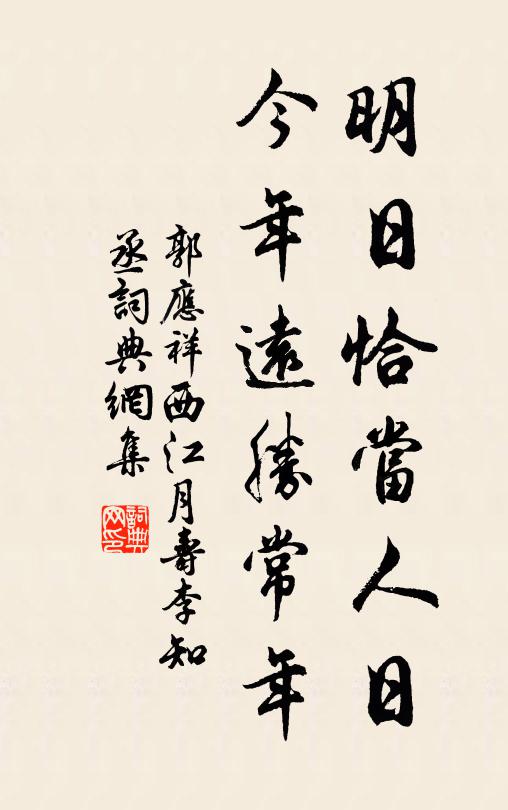 明日恰當人日
今年遠勝常年
郭應祥西江月壽李知
丞詞典網集
詞典
网印